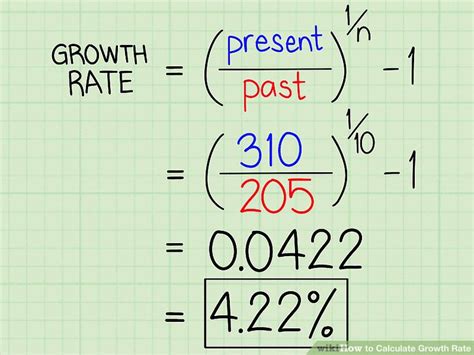 GROWTH RATE = (present/past)^1/n - 1
= (310/205)^1/10 - 1
= 0.0422
= 4.22%
wikiHow to Calculate Growth Rate